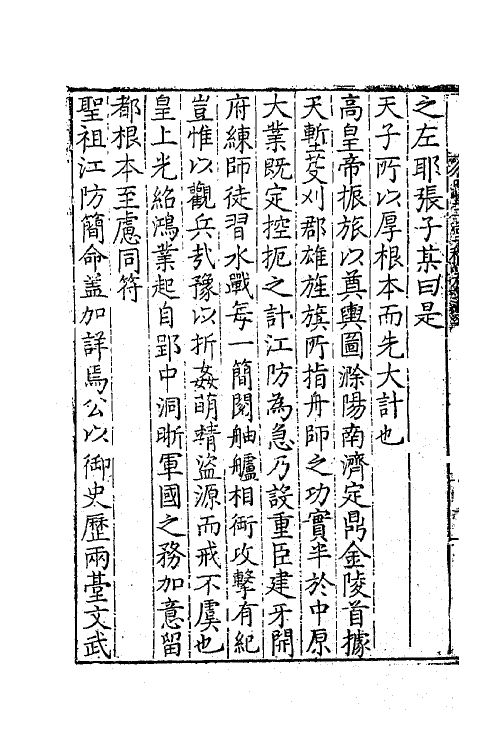 之左耶張子某曰是
天子所以厚根本而先大計也
高皇帝振旅以奠輿圖滁陽南濟定鼎金陵首據
天塹芟刈郡雄旌旗所指舟師之功實半於中原
大業既定控扼之計江防為急乃設重臣建牙開
府練師徒習水戰每一簡閱舳艫相銜攻擊有紀
豈惟以觀兵㢤豫以折姦萌精盜源而戒不虞也
皇上光紹鴻業起自郢中洞晰軍國之務加意留
都根本至慮同符
聖祖江防簡命盖加詳焉公以御史歷兩臺文武